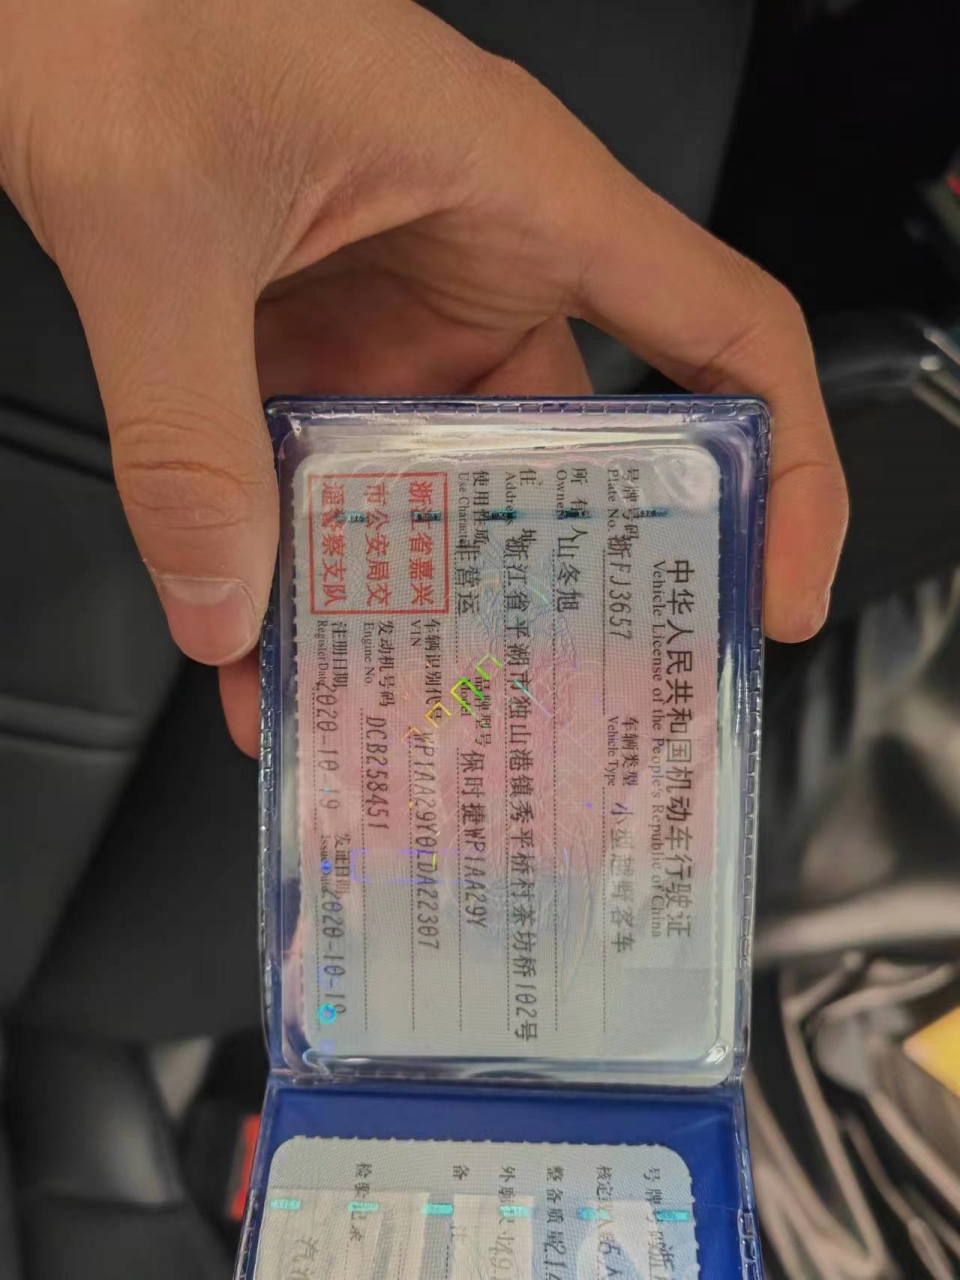 中华人民共和国机动车行驶证
Vehicle License of the People's Republic of China
号牌号码 浙FJ3657 车辆类型 小型越野客车
Plate No. Vehicle Type
所有人 山冬旭
Owner
住址 浙江省平湖市独山港镇秀平桥村茶坊桥102号
Address
使用性质 非营运 品牌型号 保时捷WP1AA29Y
Use Character Model
浙江省嘉兴
市公安局交
通警察支队
车辆识别代号 WP1AA29Y0LDA22307
VIN
发动机号码 DCB258451
Engine No.
注册日期 2020-10-19 发证日期 2020-10-19
Register Date Issue Date
号牌号码
核定载人
整备质量
外廓尺寸
备注
检验记录